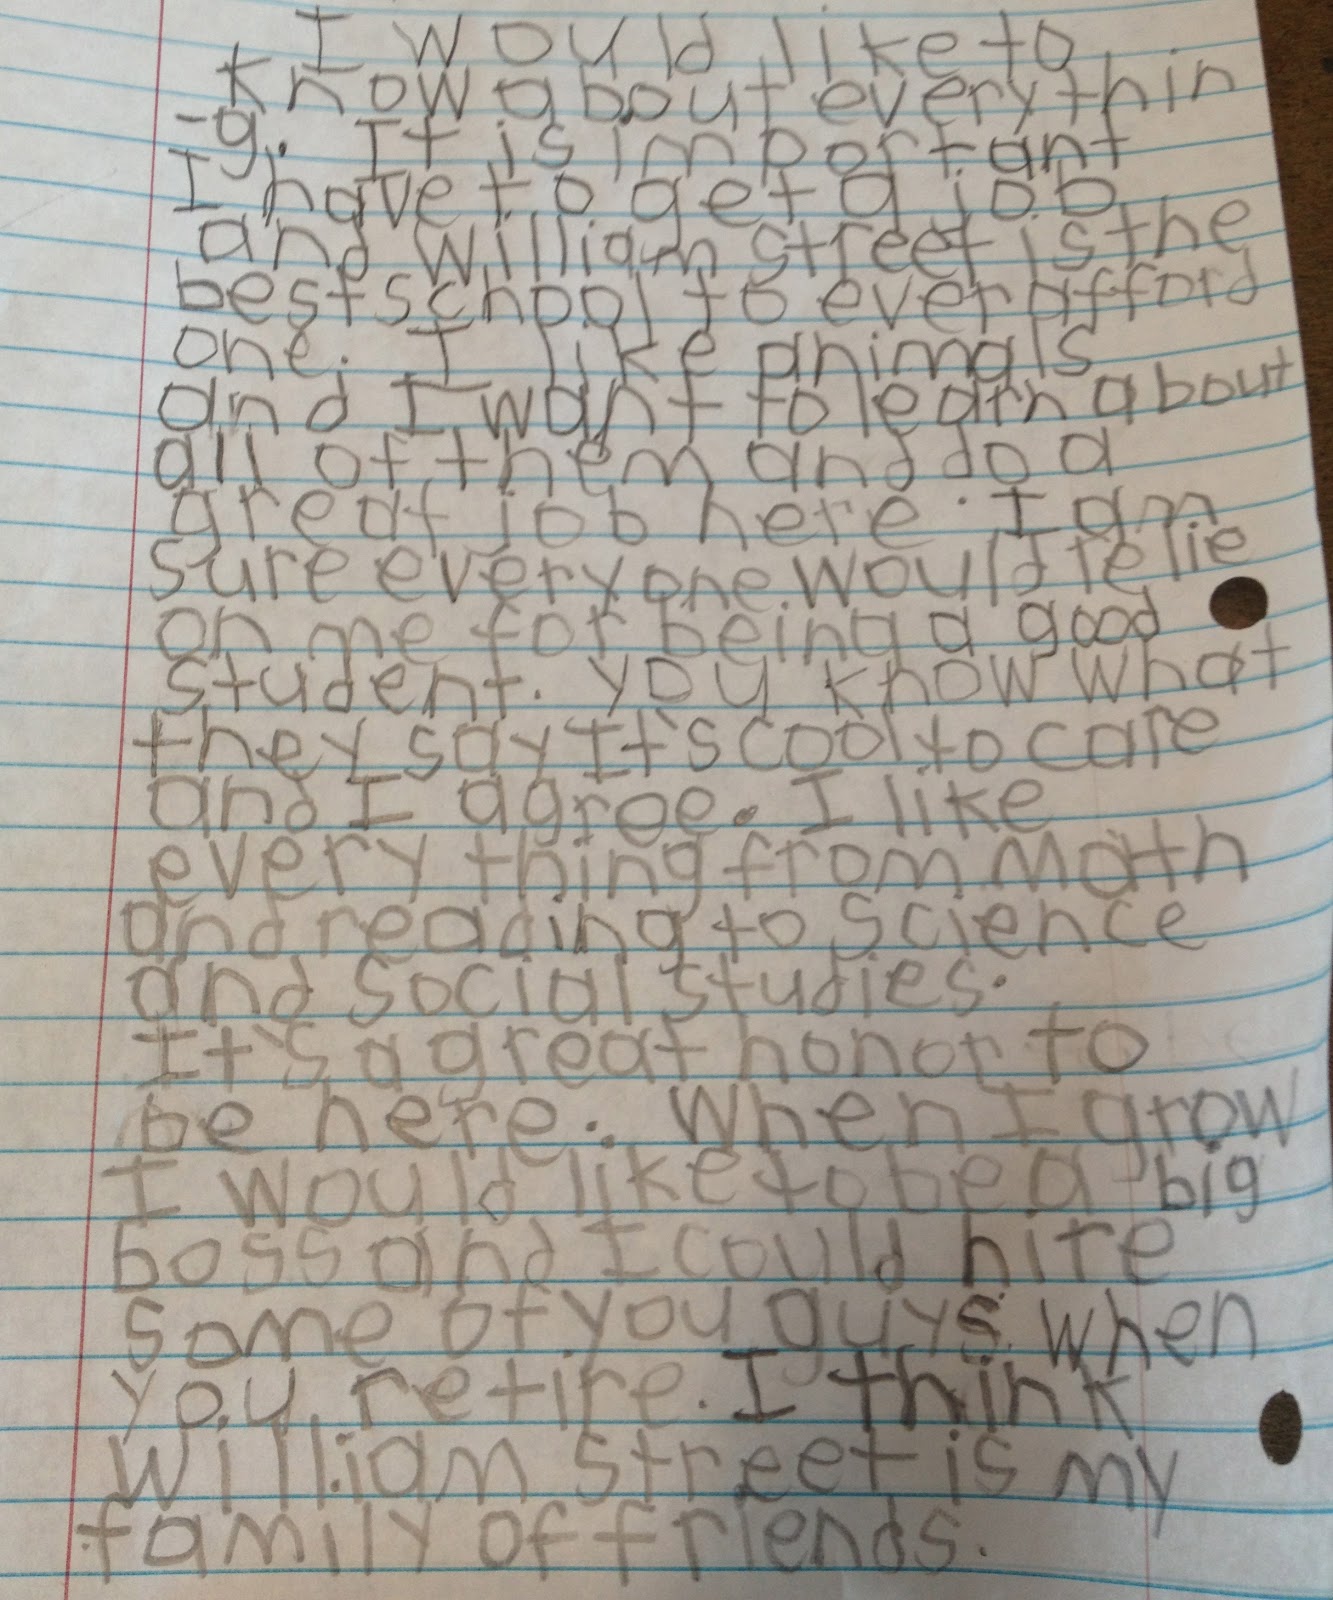 I would like to
know about everythin
-g. It is important
I have to get a job
and William Street is the
best school to ever afford
one. I like animals
and I want to learn about
all of them and do a
great job here. I am
sure everyone would relie
on me for being a good
student. you know what
they say It's cool to care
and I agree. I like
every thing from math
and reading to science
and social studies.
It's a great honor to
be here. When I grow
I would like to be a big
boss and I could hire
some of you guys when
you retire. I think
William Street is my
family of friends.